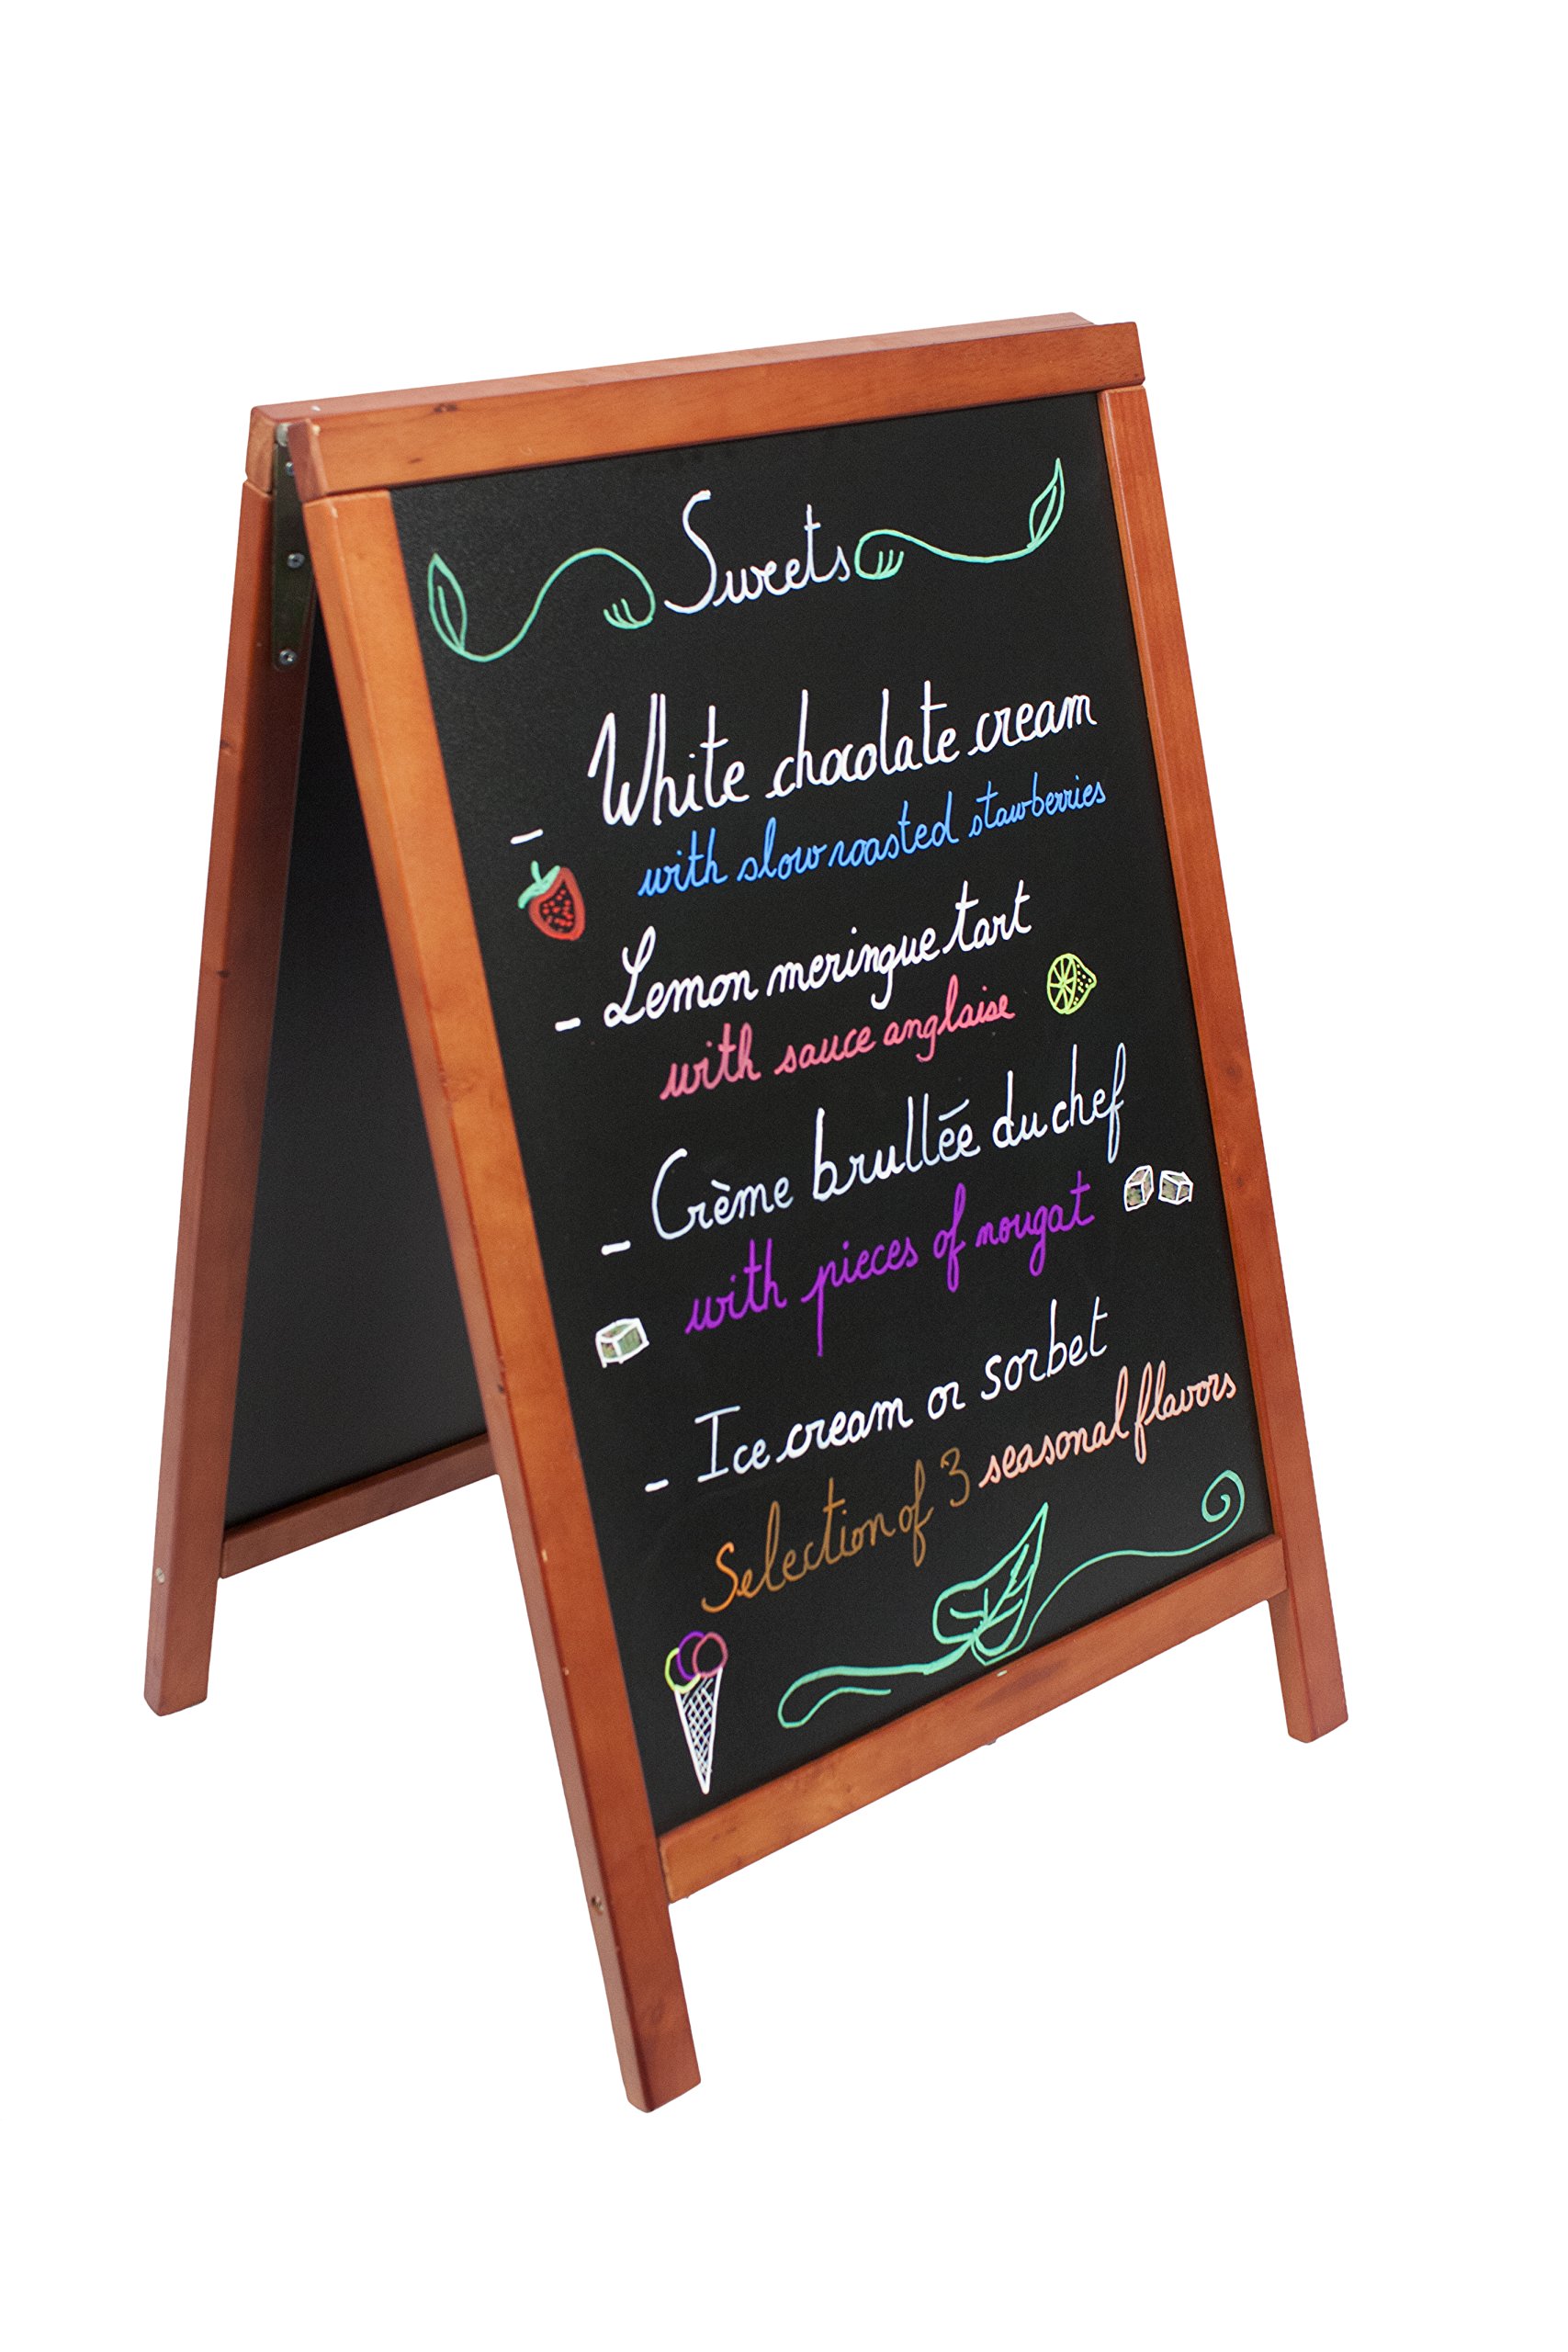 Sweets
- White chocolate cream
with slow roasted stawberries
- Lemon meringue tart
with sauce anglaise
- Crème brullēe du chef
with pieces of nougat
- Ice cream or sorbet
Selection of 3 seasonal flavors